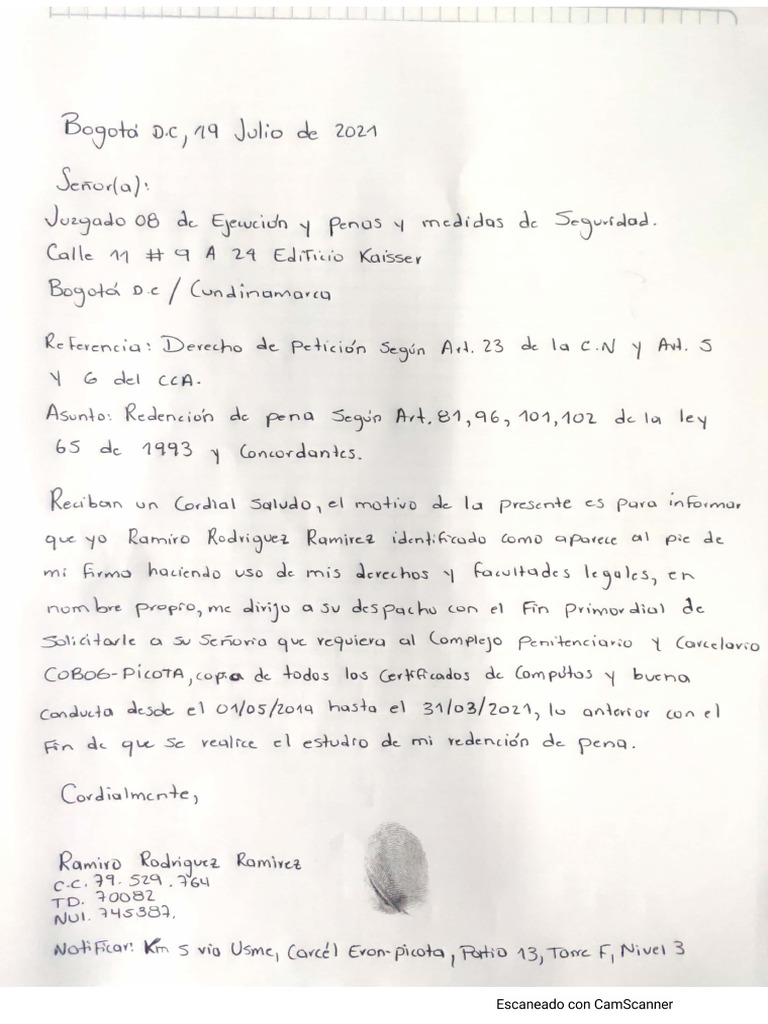 Bogotá D.C, 19 Julio de 2021
Señor(a):
Juzgado 08 de Ejecución y penas y medidas de Seguridad.
Calle 11 # 9 A 24 Edificio Kaisser
Bogotá D.C / Cundinamarca
Referencia: Derecho de Petición Según Art. 23 de la C.N y Art. 5
y 6 del CCA.
Asunto: Redención de pena Según Art. 81, 96, 101, 102 de la ley
65 de 1993 y Concordantes.
Reciban un Cordial Saludo, el motivo de la presente es para informar
que yo Ramiro Rodriguez Ramirez identificado como aparece al pie de
mi firma haciendo uso de mis derechos y facultades legales, en
nombre propio, me dirijo a su despacho con el Fin primordial de
Solicitarle a su Señoria que requiera al Complejo Penitenciario y Carcelario
COBOG-PICOTA, copia de todos los Certificados de Compútos y buena
Conducta desde el 01/05/2019 hasta el 31/03/2021, lo anterior con el
Fin de que se realice el estudio de mi redención de pena.
Cordialmente,
Ramiro Rodriguez Ramirez
C.C. 79.529.764
TD. 70082
NUI. 745387.
Notificar: Km 5 via Usme, Carcél Eron-picota, Patio 13, Torre F, Nivel 3
Escaneado con CamScanner